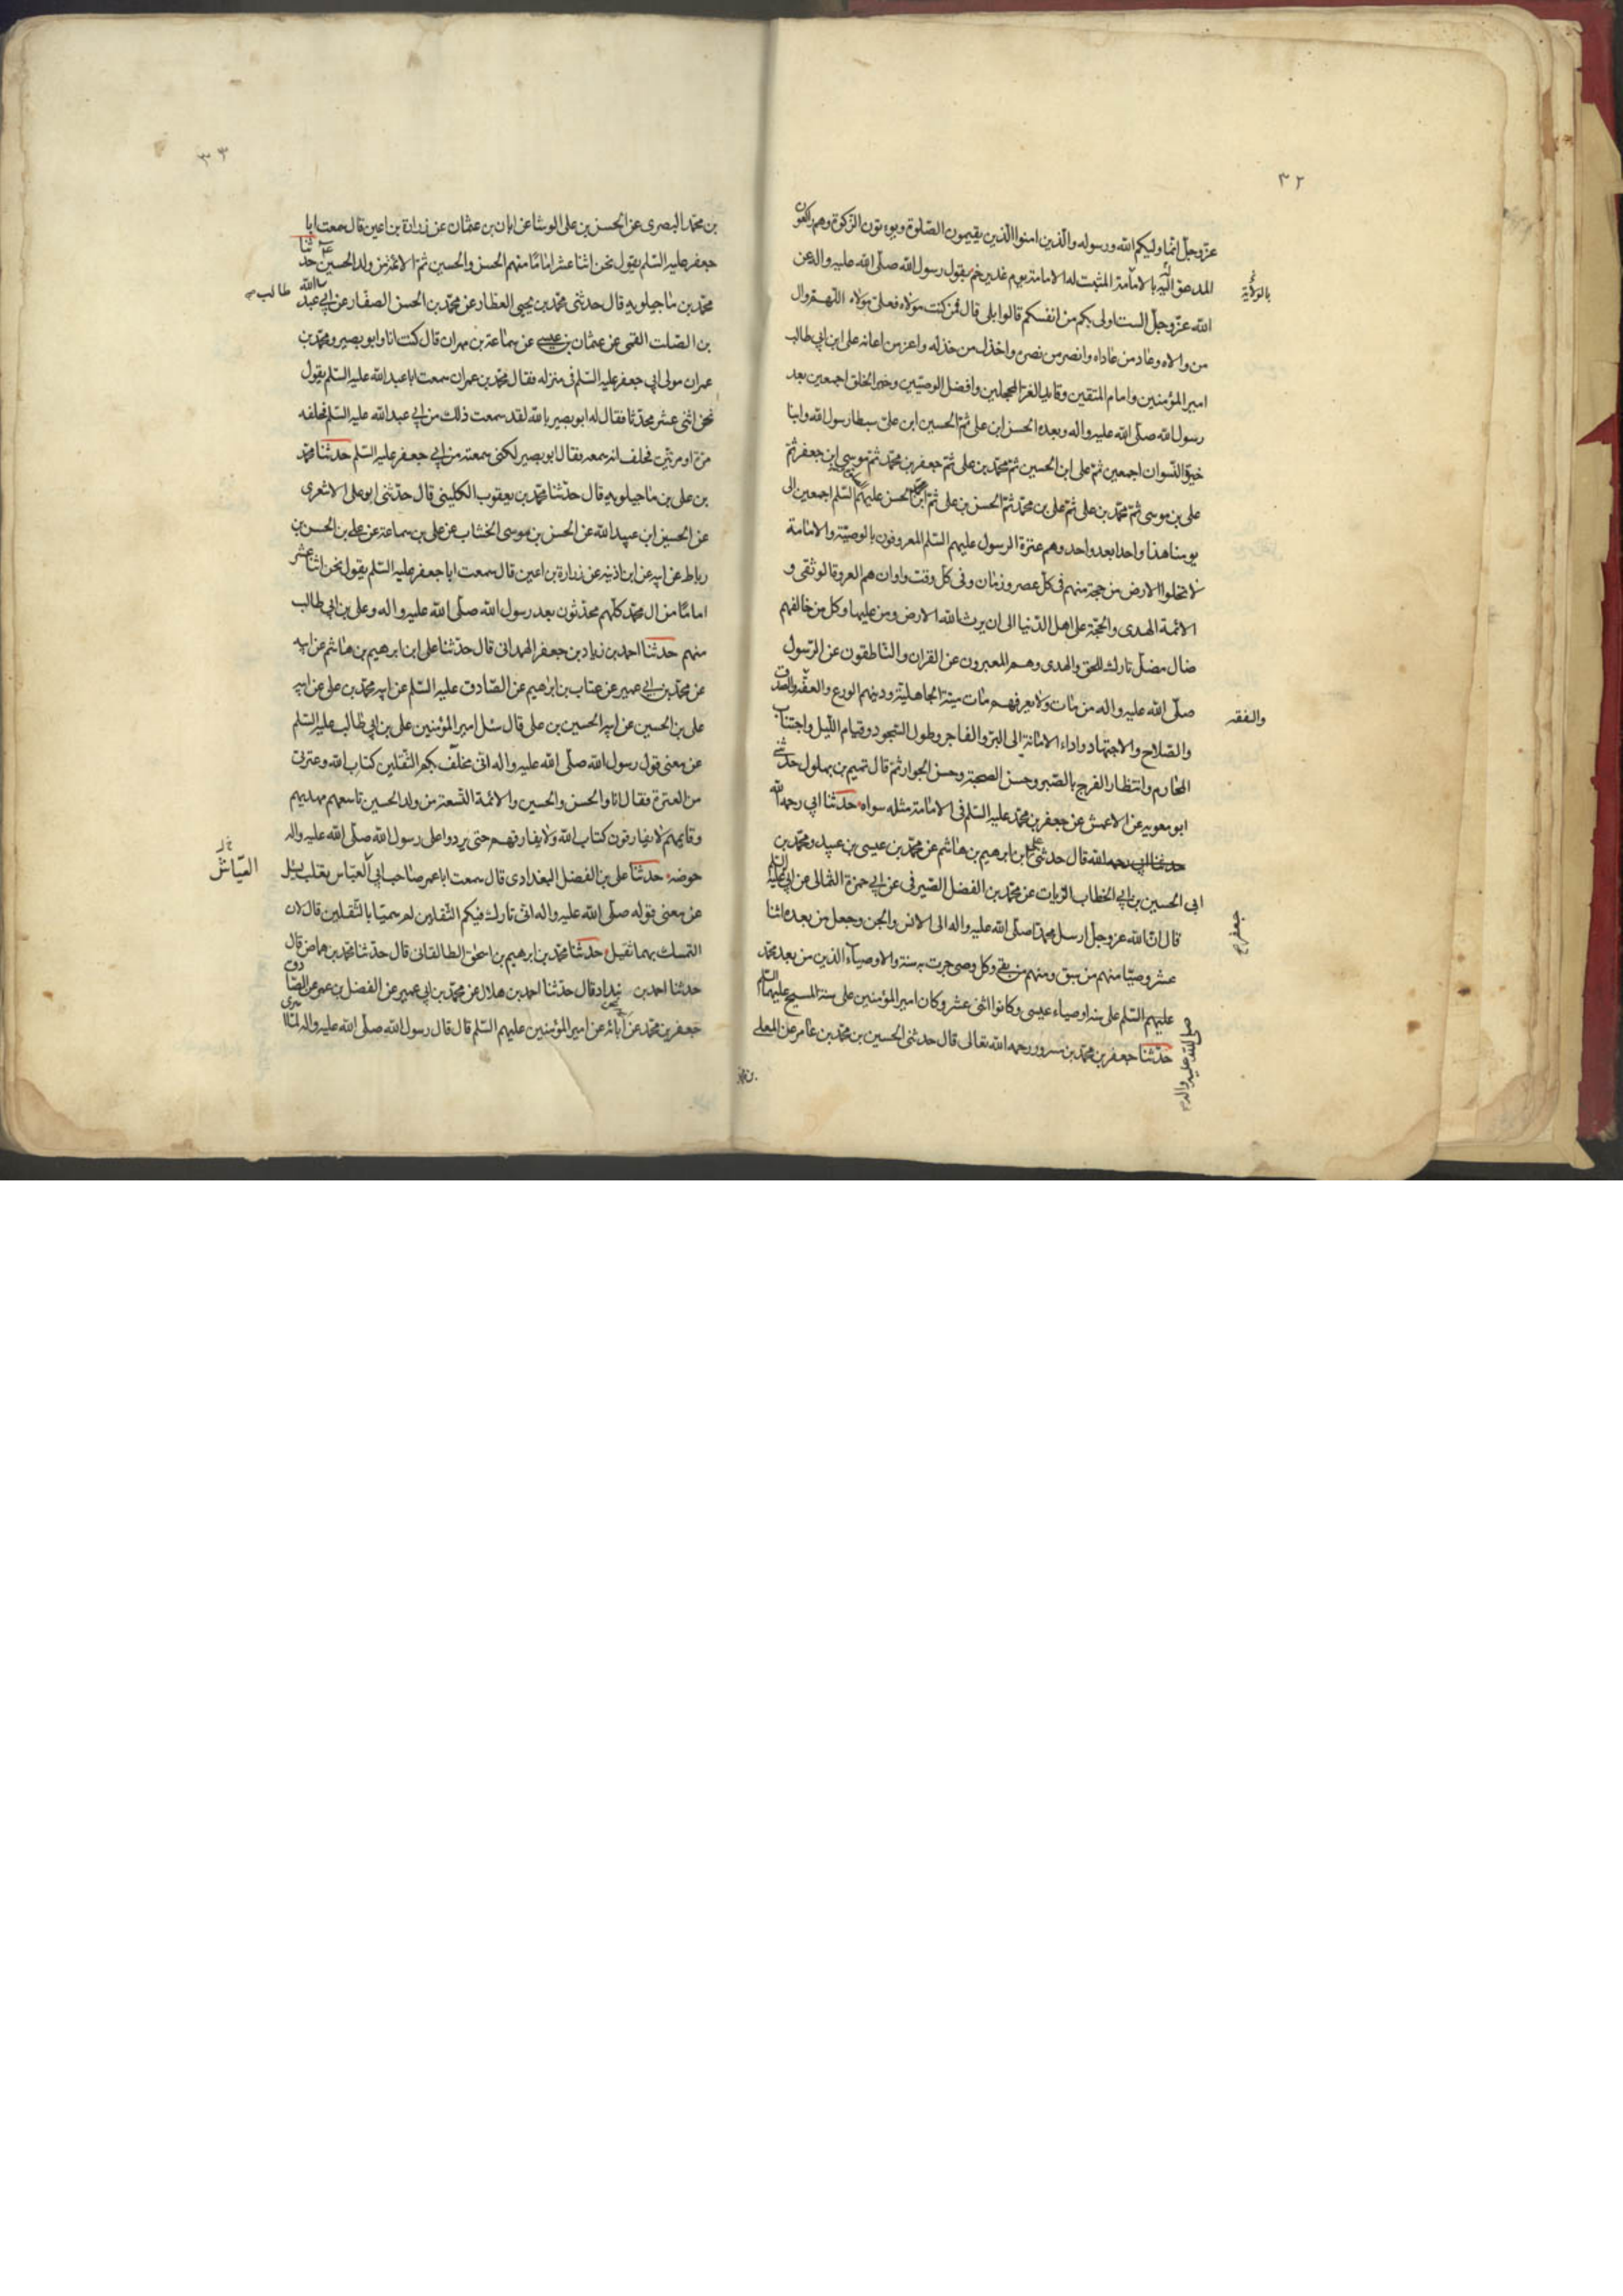 ٣٢
عز وجل انما وليكم الله ورسوله والذين امنوا الذين يقيمون الصلوة ويوتون الزكوة وهم راكعون
المدعو اليه بالامامة المثبت له الامامة يوم غدير خم بقول رسول الله صلى الله عليه واله عن
بالولاية
الله عز وجل الست اولى بكم من انفسكم قالوا بلى قال فمن كنت مولاه فعلى مولاه اللهم وال
من والاه وعاد من عاداه وانصر من نصره واخذل من خذله واعن من اعانه على ابن ابي طالب
امير المؤمنين وامام المتقين وقايد الغر المحجلين وافضل الوصيين وخير الخلق اجمعين بعد
رسول الله صلى الله عليه واله وبعده الحسن ابن على ثم الحسين ابن على سبطا رسول الله وابنا
خيرة النسوان اجمعين ثم على ابن الحسين ثم محمد بن على ثم جعفر بن محمد ثم موسى ابن جعفر ثم
على بن موسى ثم محمد بن على ثم على بن محمد ثم الحسن بن على ثم ابن الحسن عليهم السلم اجمعين الى
يومنا هذا واحدا بعد واحد وهم عترة الرسول عليهم السلم المعروفون بالوصية والامامة
لا تخلوا الارض من حجة منهم فى كل عصر وزمان وفى كل وقت واوان هم العروة الوثقى و
الائمة الهدى والحجة على اهل الدنيا الى ان يرث الله الارض ومن عليها وكل من خالفهم
ضال مضل تارك للحق والهدى وهم المعبرون عن القران والناطقون عن الرسول
صلى الله عليه واله من مات ولا يعرفهم مات ميتة الجاهلية ودينهم الورع والعفة والصدق
والفقه
والصلاح والاجتهاد واداء الامانة الى البر والفاجر وطول السجود وقيام الليل واجتناب
المحارم وانتظار الفرج بالصبر وحسن الصحبة وحسن الجوار ثم قال تميم بن بهلول حدثنى
ابو معويه عن الاعمش عن جعفر بن محمد عليه السلم فى الامامة مثله سواه حدثنا ابي رحمه الله
حدثنا ابي رحمه الله قال حدثنى على ابن ابرهيم بن هاشم عن محمد بن عيسى بن عبيد ومحمد بن
ابى الحسين بن ابي الخطاب الزيات عن محمد بن الفضل الصيرفى عن ابي حمزة الثمالى عن ابي عليه السلم
جعفر
قال ان الله عز وجل ارسل محمدا صلى الله عليه واله الى الانس والجن وجعل من بعده اثنا
عشر وصيا منهم من سبق ومنهم من بقى وكل وصى جرت به سنة والاوصياء الذين من بعد محمد
عليهم السلم على سنة اوصياء عيسى وكانوا اثنى عشر وكان امير المؤمنين على سنة المسيح عليهما السلم
صلى الله عليه واله
حدثنا جعفر بن محمد بن مسرور رحمه الله تعالى قال حدثنى الحسين بن محمد بن عامر عن المعلى
بن محمد
٣٣
بن محمد البصرى عن الحسن بن على الوشا عن ابان بن عثمان عن زرارة بن اعين قال سمعت ابا
جعفر عليه السلم يقول نحن اثنا عشر اماما منهم الحسن والحسين ثم الائمة من ولد الحسين ع حدثنا
محمد بن ماجيلويه قال حدثنى محمد بن يحيى العطار عن محمد بن الحسن الصفار عن ابي عبد الله
طالب
بن الصلت القمى عن عثمان بن عيسى عن سماعة بن مهران قال كنت انا وابو بصير ومحمد بن
عمران مولى ابي جعفر عليه السلم فى منزله فقال محمد بن عمران سمعت ابا عبد الله عليه السلم يقول
نحن اثنى عشر محدثا فقال له ابو بصير بالله لقد سمعت ذلك من ابي عبد الله عليه السلم فحلفه
مرة او مرتين فحلف انه سمعه فقال ابو بصير لكنى سمعته من ابي جعفر عليه السلم حدثنا محمد
بن على بن ماجيلويه قال حدثنا محمد بن يعقوب الكلينى قال حدثنى ابو على الاشعرى
عن الحسين ابن عبيد الله عن الحسن بن موسى الخشاب عن على بن سماعة عن على بن الحسن بن
رباط عن ابيه عن ابن اذينه عن زرارة بن اعين قال سمعت ابا جعفر عليه السلم يقول نحن اثنا عشر
اماما من ال محمد كلهم محدثون بعد رسول الله صلى الله عليه واله وعلى بن ابي طالب
منهم حدثنا احمد بن زياد بن جعفر الهمدانى قال حدثنا على ابن ابرهيم بن هاشم عن ابيه
عن محمد بن ابي عمير عن عتاب بن ابرهيم عن الصادق عليه السلم عن ابيه محمد بن على عن ابيه
على بن الحسين عن ابيه الحسين بن على قال سئل امير المؤمنين على بن ابي طالب عليه السلم
عن معنى قول رسول الله صلى الله عليه واله انى مخلف بكم الثقلين كتاب الله وعترتى
من العترة فقال انا والحسن والحسين والائمة التسعة من ولد الحسين تاسعهم مهديهم
وقايمهم لا يفارقون كتاب الله ولا يفارقهم حتى يردوا على رسول الله صلى الله عليه واله
حوضه حدثنا على بن الفضل البغدادى قال سمعت ابا عمر صاحب ابي العباس تغلب يسئل
العياش
عن معنى قوله صلى الله عليه واله انى تارك فيكم الثقلين لم سميا بالثقلين قال لان
التمسك بهما ثقيل حدثنا محمد بن ابرهيم بن اسحق الطالقانى قال حدثنا محمد بن همام قال
حدثنا احمد بن بنداد قال حدثنا احمد بن هلال عن محمد بن ابي عمير عن الفضل بن عمر عن الصادق
جعفر بن محمد عن ابائه عن امير المؤمنين عليهم السلم قال قال رسول الله صلى الله عليه واله لما اسرى